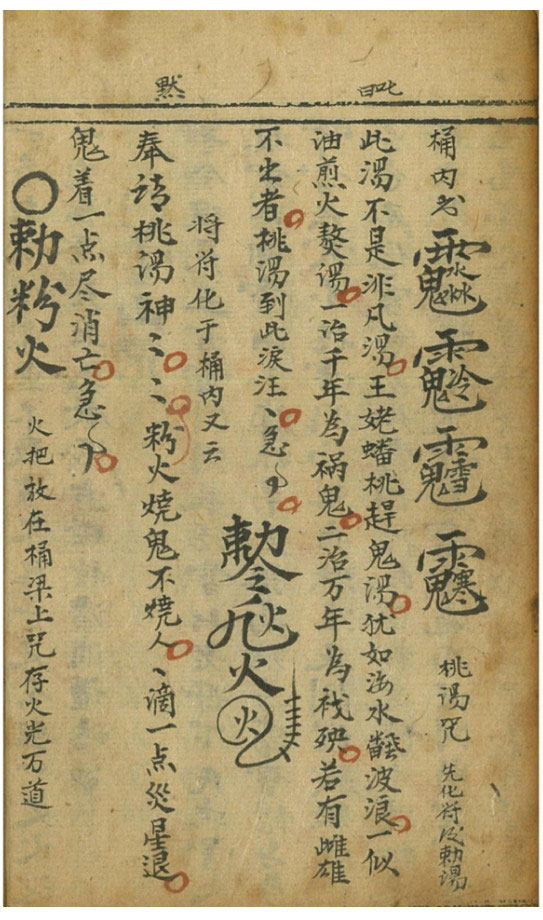 黙
桶内书 桃湯咒 先化符后勅湯
此湯不是非凡湯王姥蟠桃趕鬼湯犹如海水翻波浪一似
油煎火熬湯一治千年為禍鬼二治万年為伐殃若有雌雄
不出者桃湯到此淚汪〻急〻
将符化于桶内又云
奉请桃湯神〻〻粉火燒鬼不燒人〻滴一点災星退
鬼着一点尽消亡急〻
〇勅粉火 火把放在桶梁上咒存火光万道